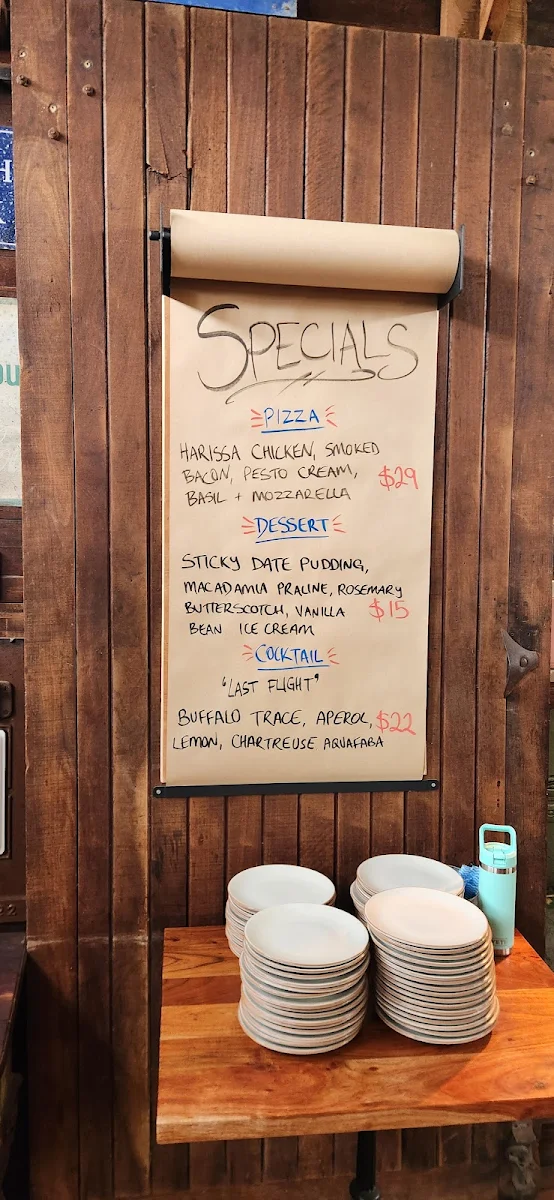 SPECIALS
PIZZA
HARISSA CHICKEN, SMOKED
BACON, PESTO CREAM,
BASIL + MOZZARELLA
$29
DESSERT
STICKY DATE PUDDING,
MACADAMIA PRALINE, ROSEMARY
BUTTERSCOTCH, VANILLA
BEAN ICE CREAM
$15
COCKTAIL
"LAST FLIGHT"
BUFFALO TRACE, APEROL,
LEMON, CHARTREUSE AQUAFABA
$22